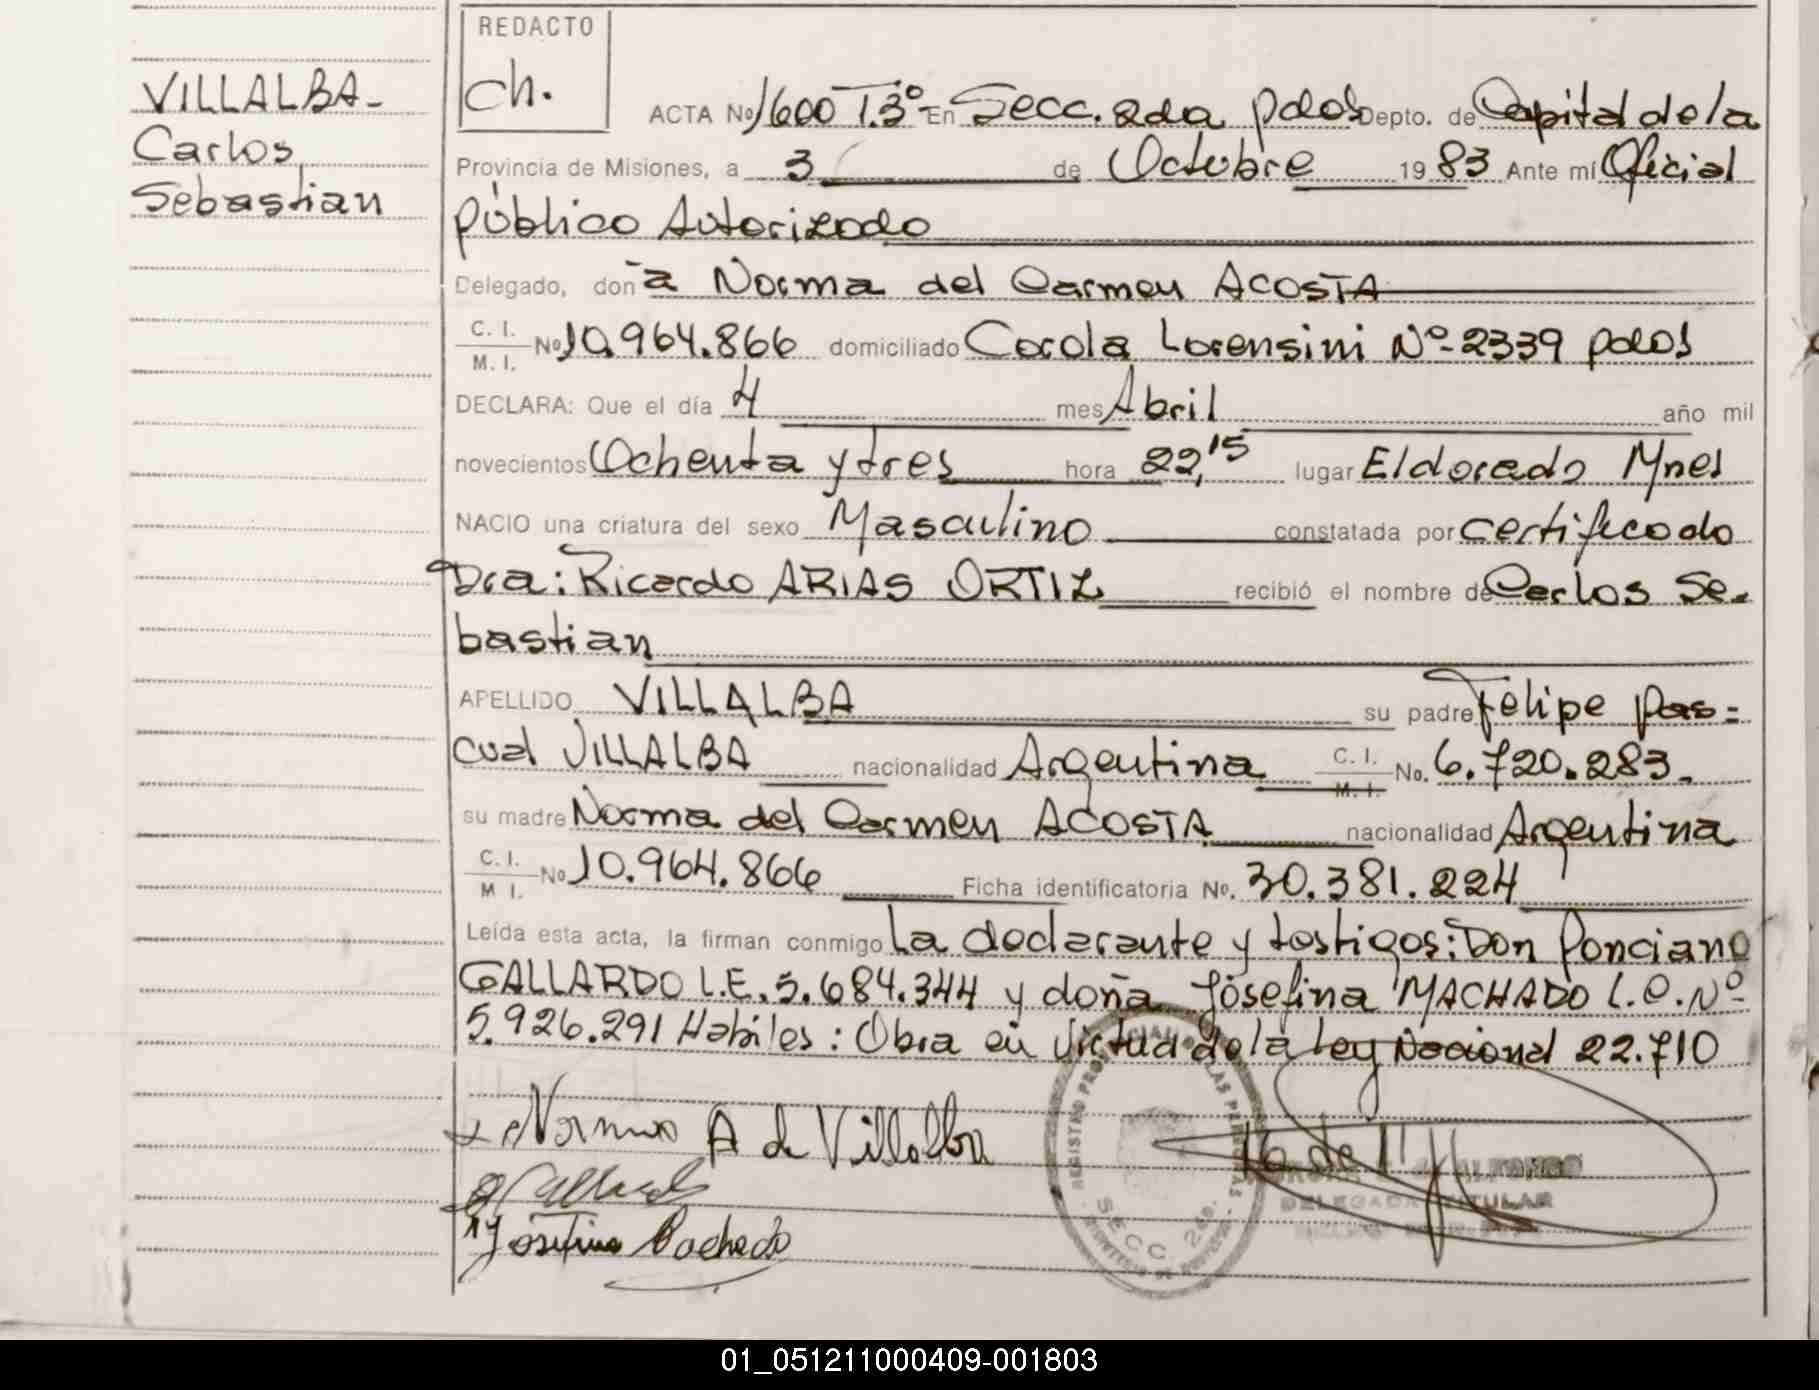 REDACTO
Ch.
VILLALBA-
Carlos
Sebastian
ACTA No 1600 T.3° En Secc. 2da pdas Depto. de Capital de la
Provincia de Misiones, a 3 de Octubre 1983 Ante mí Oficial
público Autorizado
Delegado, doña Norma del Carmen ACOSTA
C. I. M. I. No 10.964.866 domiciliado Cocola Lorensini Nº 2339 pdas
DECLARA: Que el día 4 mes Abril año mil
novecientos Ochenta y tres hora 22,15 lugar Eldorado Mnes
NACIO una criatura del sexo Masculino constatada por certificado
Dra: Ricardo ARIAS ORTIZ recibió el nombre de Carlos Se-
bastian
APELLIDO VILLALBA su padre Felipe Pas=
cual VILLALBA nacionalidad Argentina C. I. M. I. No. 6.720.283.
su madre Norma del Carmen ACOSTA nacionalidad Argentina
C. I. M I. No 10.964.866 Ficha identificatoria No. 30.381.224
Leída esta acta, la firman conmigo La declarante y testigos: Don Ponciano
GALLARDO L.E. 5.684.344 y doña Josefina MACHADO L.C. Nº
5.926.291 Habiles: Obra en virtud de la Ley Nacional 22.710
Norma A de Villalba
REGISTRO PROVINCIAL DE LAS PERSONAS
SECC 2da.
16 de 11
DELEGADA TITULAR
Josefina Machado
01_051211000409-001803